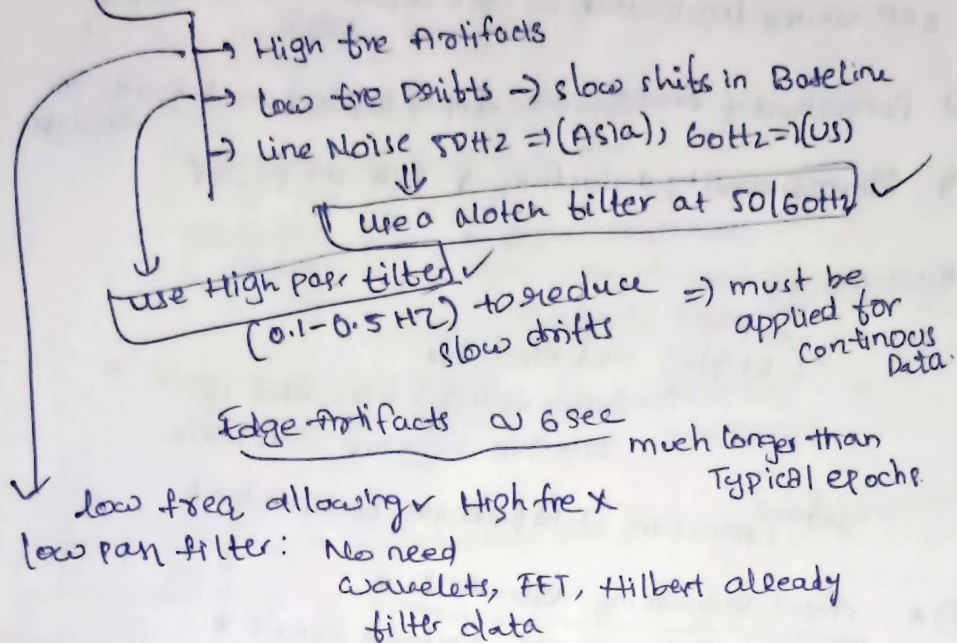 → High fre Artifacts
→ Low fre Drifts → slow shifs in Baseline
→ Line Noise 50Hz ⇒ (ASIA), 60Hz ⇒ (US)
⇓
Use a Notch filter at 50/60Hz ✓
use High pass filter ✓
(0.1-0.5 HZ) to reduce slow drifts ⇒ must be applied for continous Data.
Edge Artifacts ~ 6 sec
much longer than Typical epochs.
low freq allowing ✓ High fre X
low pass filter: No need
wavelets, FFT, Hilbert already
filter data